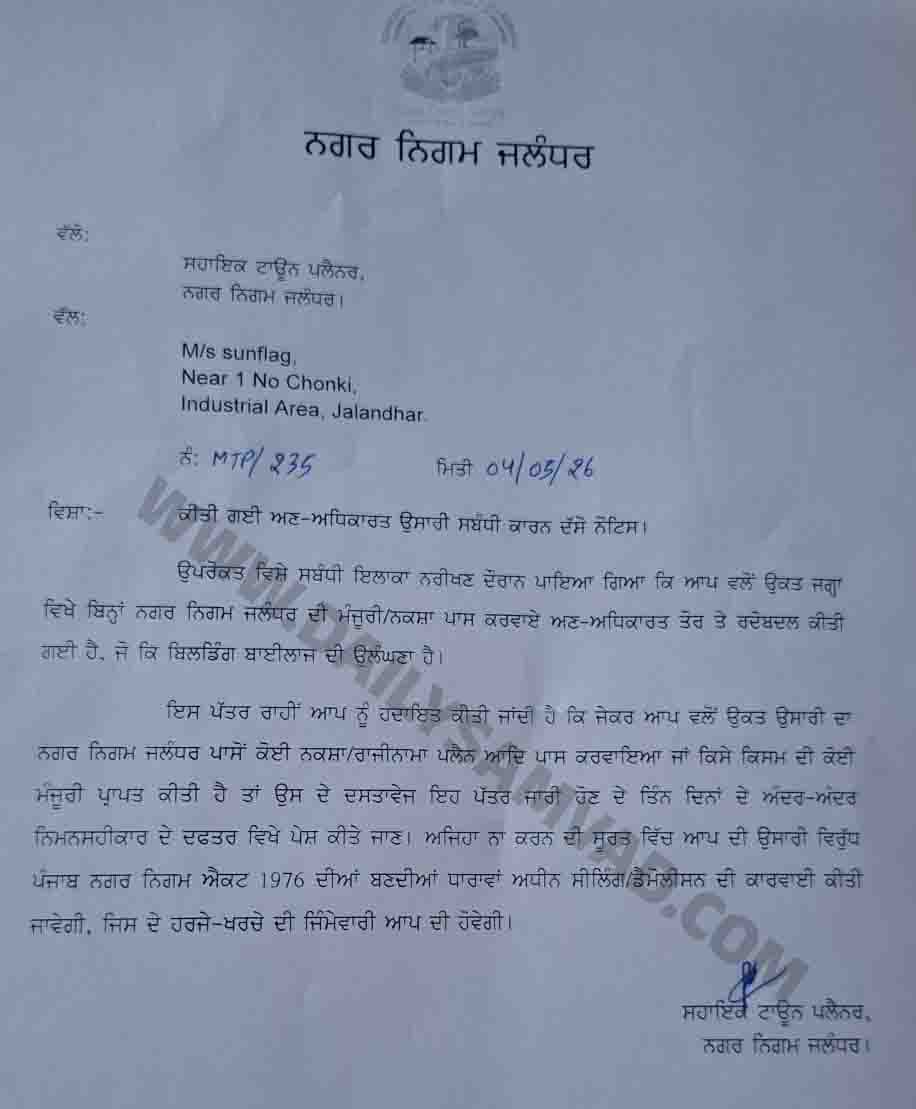 ਨਗਰ ਨਿਗਮ ਜਲੰਧਰ
ਵੱਲੋ:
ਸਹਾਇਕ ਟਾਊਨ ਪਲੈਨਰ,
ਨਗਰ ਨਿਗਮ ਜਲੰਧਰ।
ਵੱਲ:
M/s sunflag,
Near 1 No Chonki,
Industrial Area, Jalandhar.
ਨੰ: MTP/235 ਮਿਤੀ 04/05/26
ਵਿਸ਼ਾ:- ਕੀਤੀ ਗਈ ਅਣ-ਅਧਿਕਾਰਤ ਉਸਾਰੀ ਸਬੰਧੀ ਕਾਰਨ ਦੱਸੋ ਨੋਟਿਸ।
ਉਪਰੋਕਤ ਵਿਸ਼ੇ ਸਬੰਧੀ ਇਲਾਕਾ ਨਰੀਖਣ ਦੌਰਾਨ ਪਾਇਆ ਗਿਆ ਕਿ ਆਪ ਵਲੋਂ ਉਕਤ ਜਗ੍ਹਾ
ਵਿਖੇ ਬਿਨ੍ਹਾਂ ਨਗਰ ਨਿਗਮ ਜਲੰਧਰ ਦੀ ਮੰਜੂਰੀ/ਨਕਸ਼ਾ ਪਾਸ ਕਰਵਾਏ ਅਣ-ਅਧਿਕਾਰਤ ਤੋਰ ਤੇ ਰਦੋਬਦਲ ਕੀਤੀ
ਗਈ ਹੈ, ਜੋ ਕਿ ਬਿਲਡਿੰਗ ਬਾਈਲਾਜ ਦੀ ਉਲੰਘਣਾ ਹੈ।
ਇਸ ਪੱਤਰ ਰਾਹੀਂ ਆਪ ਨੂੰ ਹਦਾਇਤ ਕੀਤੀ ਜਾਂਦੀ ਹੈ ਕਿ ਜੇਕਰ ਆਪ ਵਲੋਂ ਉਕਤ ਉਸਾਰੀ ਦਾ
ਨਗਰ ਨਿਗਮ ਜਲੰਧਰ ਪਾਸੋਂ ਕੋਈ ਨਕਸ਼ਾ/ਰਾਜੀਨਾਮਾ ਪਲੈਨ ਆਦਿ ਪਾਸ ਕਰਵਾਇਆ ਜਾਂ ਕਿਸੇ ਕਿਸਮ ਦੀ ਕੋਈ
ਮੰਜੂਰੀ ਪ੍ਰਾਪਤ ਕੀਤੀ ਹੈ ਤਾਂ ਉਸ ਦੇ ਦਸਤਾਵੇਜ ਇਹ ਪੱਤਰ ਜਾਰੀ ਹੋਣ ਦੇ ਤਿੰਨ ਦਿਨਾਂ ਦੇ ਅੰਦਰ-ਅੰਦਰ
ਨਿਮਨਸਹੀਕਾਰ ਦੇ ਦਫਤਰ ਵਿਖੇ ਪੇਸ਼ ਕੀਤੇ ਜਾਣ। ਅਜਿਹਾ ਨਾ ਕਰਨ ਦੀ ਸੂਰਤ ਵਿੱਚ ਆਪ ਦੀ ਉਸਾਰੀ ਵਿਰੁੱਧ
ਪੰਜਾਬ ਨਗਰ ਨਿਗਮ ਐਕਟ 1976 ਦੀਆਂ ਬਣਦੀਆਂ ਧਾਰਾਵਾਂ ਅਧੀਨ ਸੀਲਿੰਗ/ਡੈਮੋਲੀਸ਼ਨ ਦੀ ਕਾਰਵਾਈ ਕੀਤੀ
ਜਾਵੇਗੀ, ਜਿਸ ਦੇ ਹਰਜੇ-ਖਰਚੇ ਦੀ ਜਿੰਮੇਵਾਰੀ ਆਪ ਦੀ ਹੋਵੇਗੀ।
ਸਹਾਇਕ ਟਾਊਨ ਪਲੈਨਰ,
ਨਗਰ ਨਿਗਮ ਜਲੰਧਰ।
WWW.DAILYSAMVAD.COM